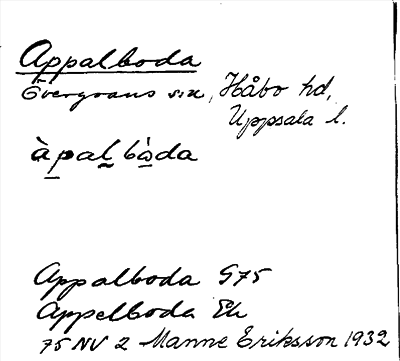 Appalboda
Övergrans sn, Håbo hd,
Uppsala l.
àpalbòda
Appalboda G75
Appelboda Ek
75 NV 2 Manne Eriksson 1932